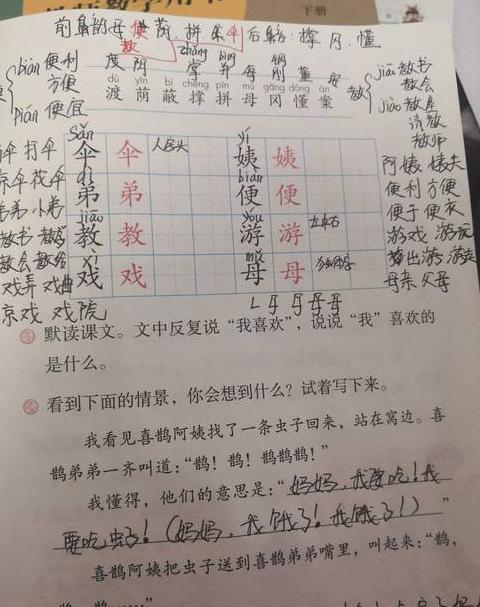 下册
前鼻韵母 便 荫 拼 朵 伞 后鼻韵 撑 冈 懂
教
zhǎng bìng
biàn 便利
方便
pián 便宜
度 阴 掌 并 每 钢 董 安
dù yīn bì chēng pīn mǔ gāng dǒng àn
渡 荫 蔽 撑 拼 母 冈 懂 案
教
jiāo 教书
教会
jiào 教室
请教
教师
sǎn
伞 打伞 伞 伞 人字头
yí
姨 姨 阿姨 姨夫
dì
弟 弟 弟弟
biàn
便 便 便利 方便
便于
jiāo
教 教 教书
yóu
游 游 左中右 游戏 游玩
教会
xì
戏 戏 戏弄 戏曲
mǔ
母 母 母亲 父母
京戏 戏院
默读课文。文中反复说“我喜欢”,说说“我”喜欢的
是什么。
看到下面的情景,你会想到什么?试着写下来。
我看见喜鹊阿姨找了一条虫子回来,站在窝边。喜
鹊弟弟一齐叫道:“鹊!鹊!鹊鹊鹊!”
我懂得,他们的意思是:“妈妈,我要吃!我
要吃虫子!(妈妈,我饿了!我饿了!)”
喜鹊阿姨把虫子送到喜鹊弟弟嘴里,叫起来:“鹊,